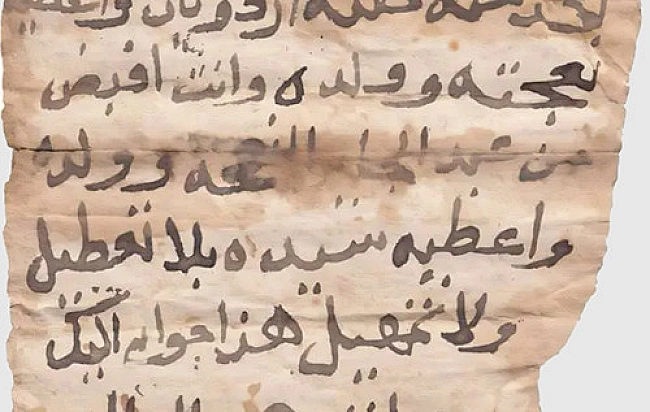 اردويات واعطيه
نعجته وولده وانت اقبض
من عبد النعجه وولده
واعطيه سيده بلا تعطيل
ولا تمهيل هذا جواب اليك